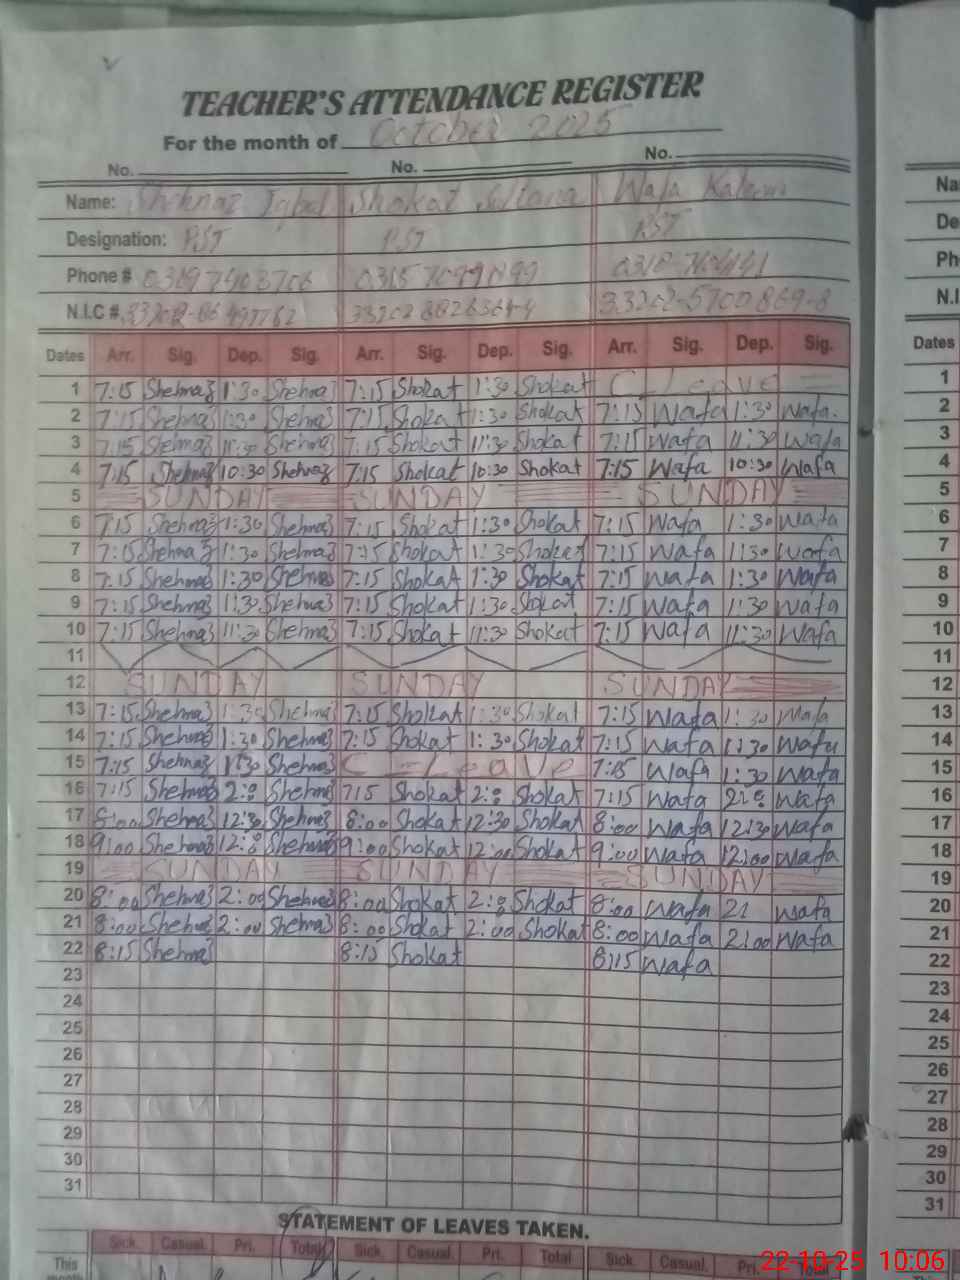 TEACHER'S ATTENDANCE REGISTER
For the month of October 2025
No. No. No.
Name: Shehnaz Iqbal Shokat Sultana Wafa Kaleem
Designation: PST PST PST
Phone # 03197403706
N.I.C #
Dates Arr. Sig. Dep. Sig. Arr. Sig. Dep. Sig. Arr. Sig. Dep. Sig. Dates
1 7:15 Shehnaz 1:30 Shehnaz 7:15 Shokat 1:30 Shokat C Leave 1
2 7:15 Shehnaz 1:30 Shehnaz 7:15 Shokat 1:30 Shokat 7:15 Wafa 1:30 Wafa. 2
3 7:15 Shehnaz 11:30 Shehnaz 7:15 Shokat 11:30 Shokat 7:15 Wafa 11:30 Wafa 3
4 7:15 Shehnaz 10:30 Shehnaz 7:15 Shokat 10:30 Shokat 7:15 Wafa 10:30 Wafa 4
5 SUNDAY SUNDAY SUNDAY 5
6 7:15 Shehnaz 1:30 Shehnaz 7:15 Shokat 1:30 Shokat 7:15 Wafa 1:30 Wafa 6
7 7:15 Shehnaz 1:30 Shehnaz 7:15 Shokat 1:30 Shokat 7:15 Wafa 1:30 Wafa 7
8 7:15 Shehnaz 1:30 Shehnaz 7:15 Shokat 1:30 Shokat 7:15 Wafa 1:30 Wafa 8
9 7:15 Shehnaz 1:30 Shehnaz 7:15 Shokat 1:30 Shokat 7:15 Wafa 1:30 Wafa 9
10 7:15 Shehnaz 11:30 Shehnaz 7:15 Shokat 11:30 Shokat 7:15 Wafa 11:30 Wafa 10
11 11
12 SUNDAY SUNDAY SUNDAY 12
13 7:15 Shehnaz 1:30 Shehnaz 7:15 Shokat 1:30 Shokat 7:15 Wafa 1:30 Wafa 13
14 7:15 Shehnaz 1:30 Shehnaz 7:15 Shokat 1:30 Shokat 7:15 Wafa 1:30 Wafa 14
15 7:15 Shehnaz 1:30 Shehnaz C - Leave 7:15 Wafa 1:30 Wafa 15
16 7:15 Shehnaz 2:00 Shehnaz 715 Shokat 2:00 Shokat 7:15 Wafa 2:00 Wafa 16
17 8:00 Shehnaz 12:30 Shehnaz 8:00 Shokat 12:30 Shokat 8:00 Wafa 12:30 Wafa 17
18 9:00 Shehnaz 12:00 Shehnaz 9:00 Shokat 12:00 Shokat 9:00 Wafa 12:00 Wafa 18
19 SUNDAY SUNDAY SUNDAY 19
20 8:00 Shehnaz 2:00 Shehnaz 8:00 Shokat 2:00 Shokat 8:00 Wafa 21 Wafa 20
21 8:00 Shehnaz 2:00 Shehnaz 8:00 Shokat 2:00 Shokat 8:00 Wafa 2:00 Wafa 21
22 8:15 Shehnaz 8:15 Shokat 8:15 Wafa 22
23 23
24 24
25 25
26 26
27 27
28 28
29 29
30 30
31 31
STATEMENT OF LEAVES TAKEN.
Sick. Casual. Pri. Total Sick. Casual. Pri. Total Sick. Casual. Pri. Total
This month
22-10-25 10:06